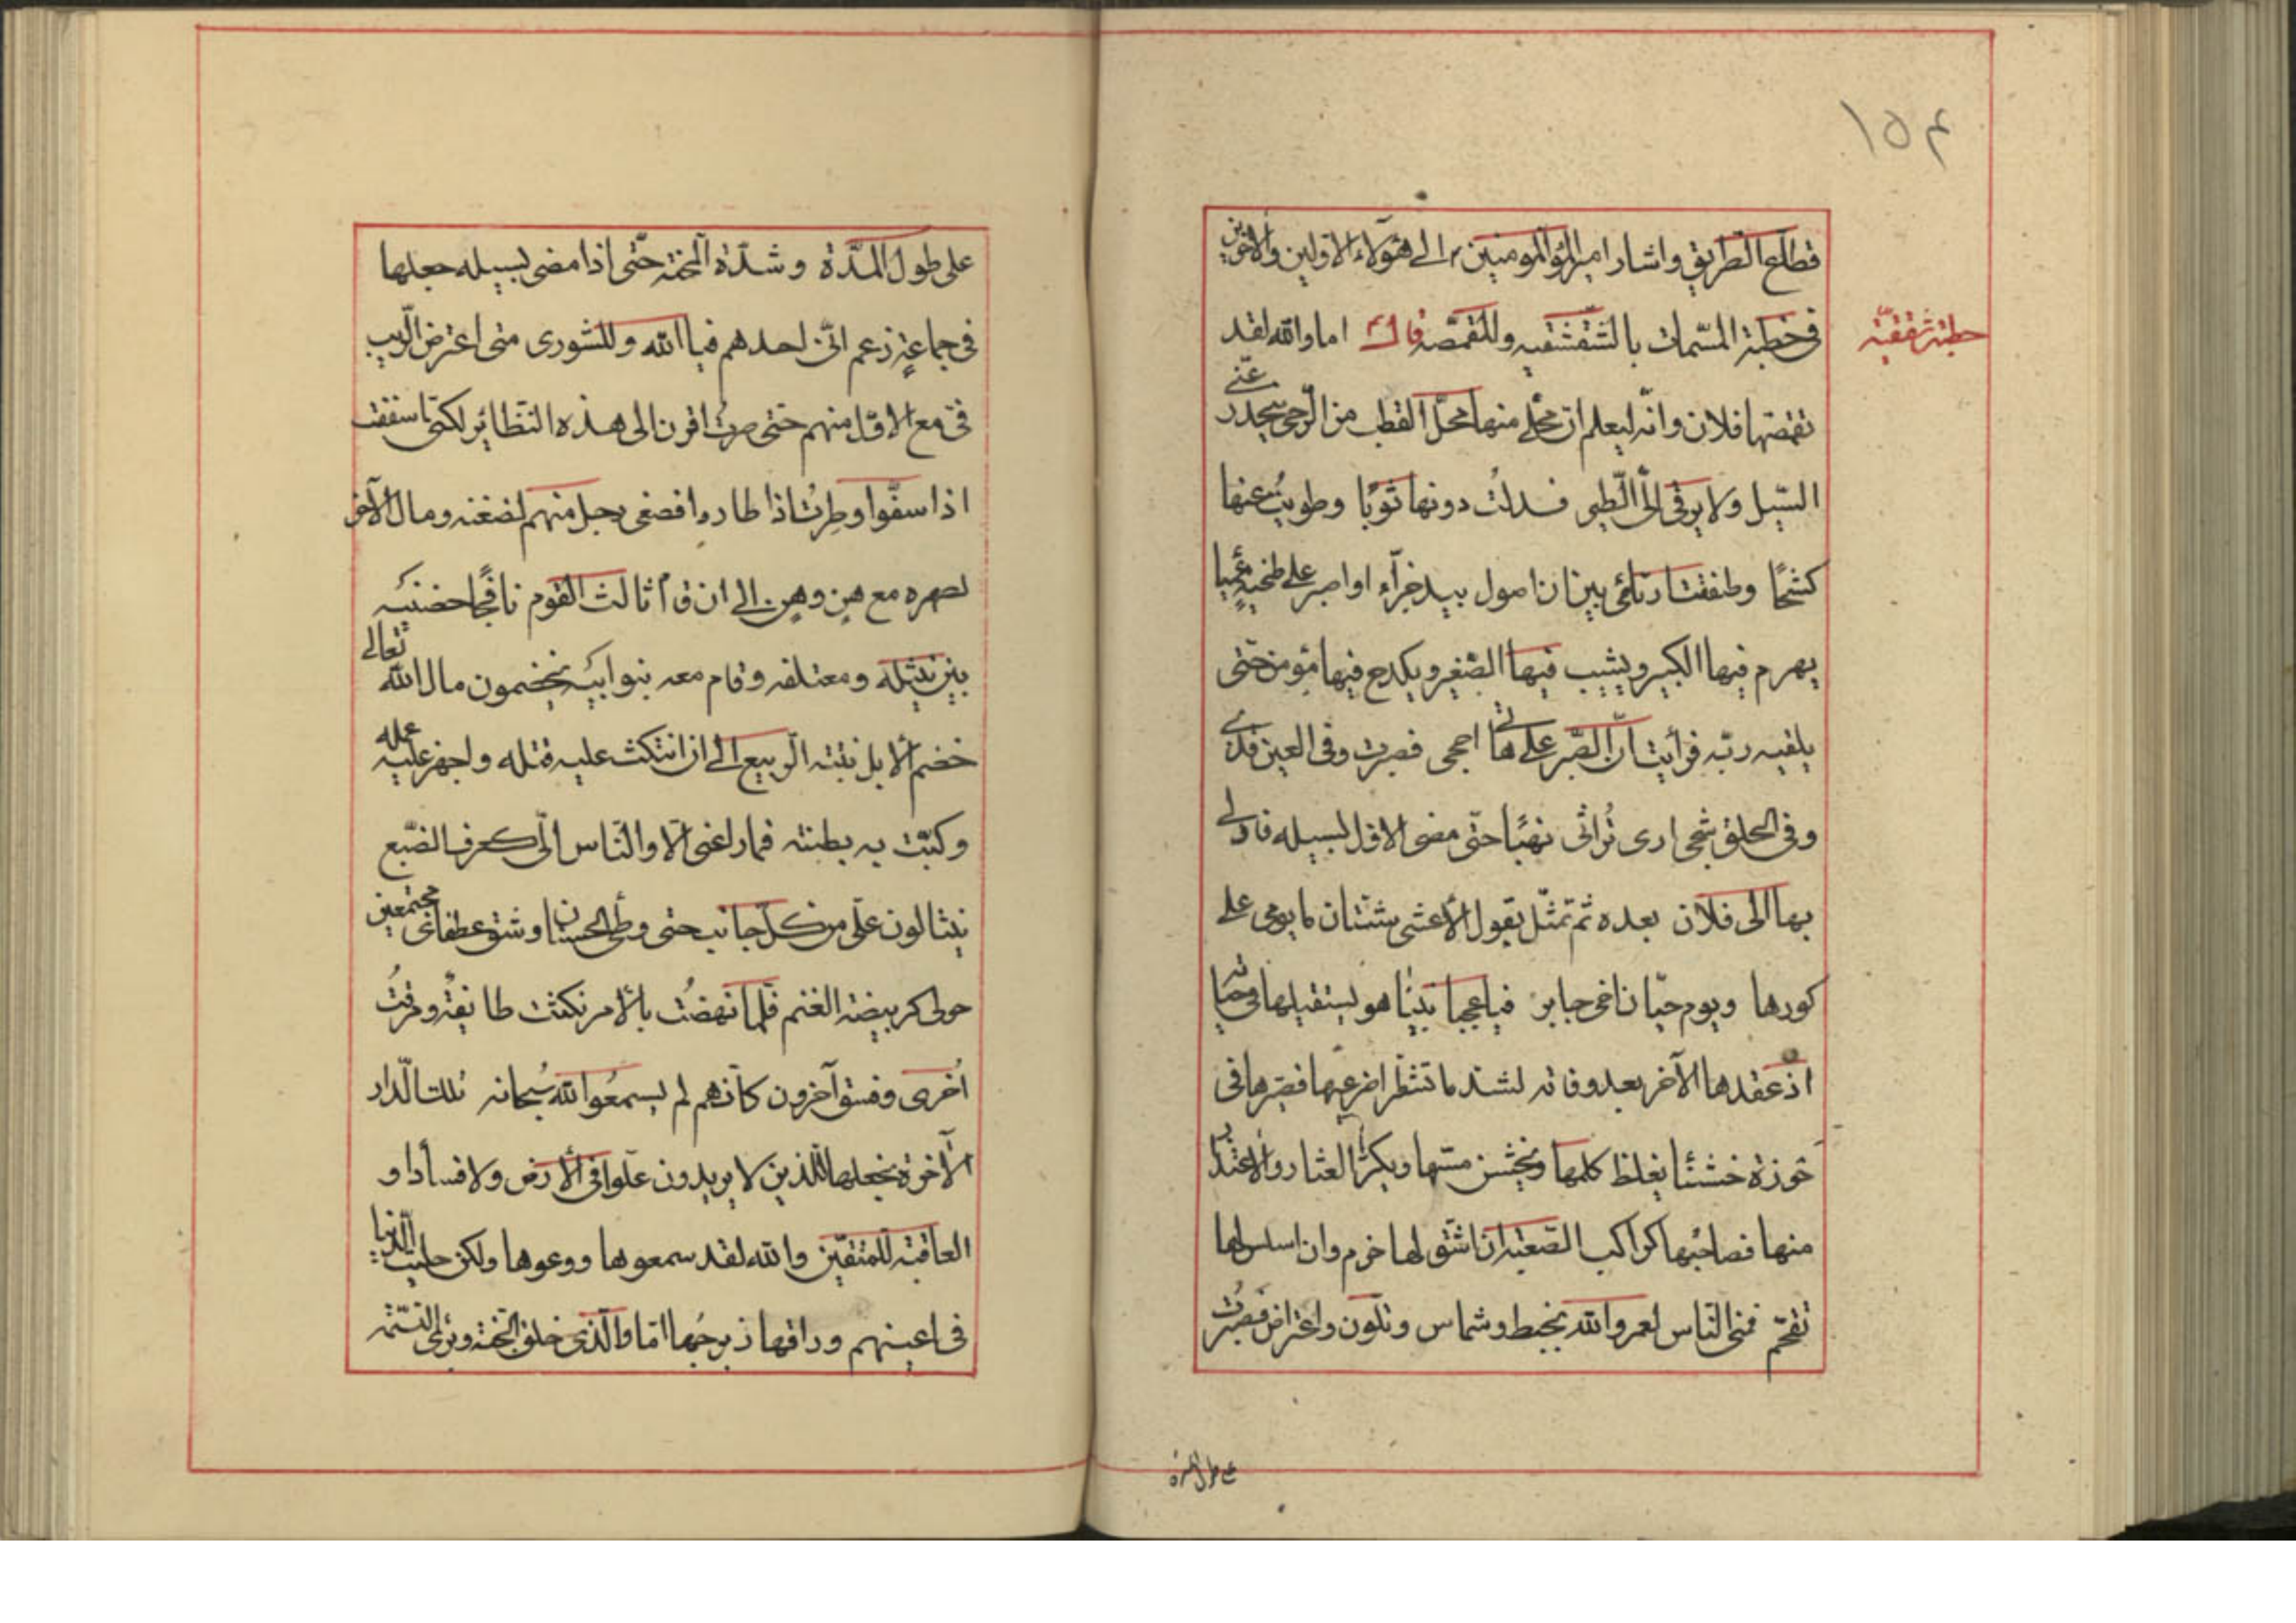 ١٥٤
قطاع الطريق واشار امير المؤمنين ع الى هؤلاء الاولين والآخرين
خطبة شقشقيّه
فى خطبة المسّمات بالشقشقيه والمقمّصه قال ع اما والله لقد
تقمصّها فلان وانّه ليعلم انّ محلّى منها محلّ القطب من الرّحى ينحدر عنّى
السّيل ولا يرقى الىّ الطّير فسدلتُ دونها ثوبًا وطويتُ عنها
كشحًا وطفقت ارتائى بين ان اصول بيد جزّآء او اصبر على طخيةٍ عميا
يهرم فيها الكبير ويشيب فيها الصّغير ويكدح فيها مؤمن حتّى
يلقيه ربّه فرأيت انّ الصّبر على هاتى احجى فصبرت وفى العين قذى
وفى الحلق شجى ارى تُراثى نهبًا حتّى مضى الاوّل لسبيله فادلى
بها الى فلان بعده ثم تمثّل بقول الأعشى شتّان ما يومى على
كورها ويوم حيّان اخى جابر فياعجبا بينٰا هو يستقيلها فى حياته
اذ عقدها الآخر بعد وفاته لشد ما تشطّرا ضرعيها فصيّرها فى
حوزة خشنٰا يغلظ كلمها ويخشن مسّها ويكثر العثار والاعتذار
منها فصاحبُها كراكب الصّعبة ان اشنق لها خرم وان اسلس لها
تقحّم فمنى النّاس لعمرو الله بخبط وشماس وتلّون واعتراض فصبرتُ
على طول المدّة
على طول المدّة وشدّة المحنة حتّى اذا مضى لسبيله جعلها
فى جماعةٍ زعم انّى احدهم فيا الله وللشورى متى اعترض الرّيب
فىّ مع الاوّل منهم حتى صرتُ اقرن الى هذه النّظائر لكنّى اسففت
اذا سفّوا وطِرتُ اذا طاروا فصغى رجل منهم لضغنه ومال الآخر
لصهره مع هنٍ وهنٍ الى ان قام ثالث القوم نافجًا حضنيه
بين نثيله ومعتلفه وقام معه بنوا ابيه يخضمون مال الله تعالى
خضم الأبل نبتة الرّبيع الى ان انتكث عليه فتله واجهز عليه عمله
وكبّت به بطنته فما راعنى الّا والنّاس الىّ كعرف الضّبع
ينثالون علىّ من كلّ جانب حتى وطى الحسنان وشق عطفاى مجتمعين
حولى كربيضة الغنم فلّما نهضتُ بالأمر نكثت طائفةٌ ومرقتْ
اُخرى وفسق آخرون كأنهم لم يسمعُوا الله سُبحانه تلك الدّار
الآخرة نجعلها للّذين لا يريدون علّوا فى الأرض ولا فسأدا و
العاقبة للمتقيّن والله لقد سمعوها ووعوها ولكن حليت الدّنيا
فى اعينهم وراقها زبرجُها امّا والّذى خلق الحّبة وبرئ النّسمة